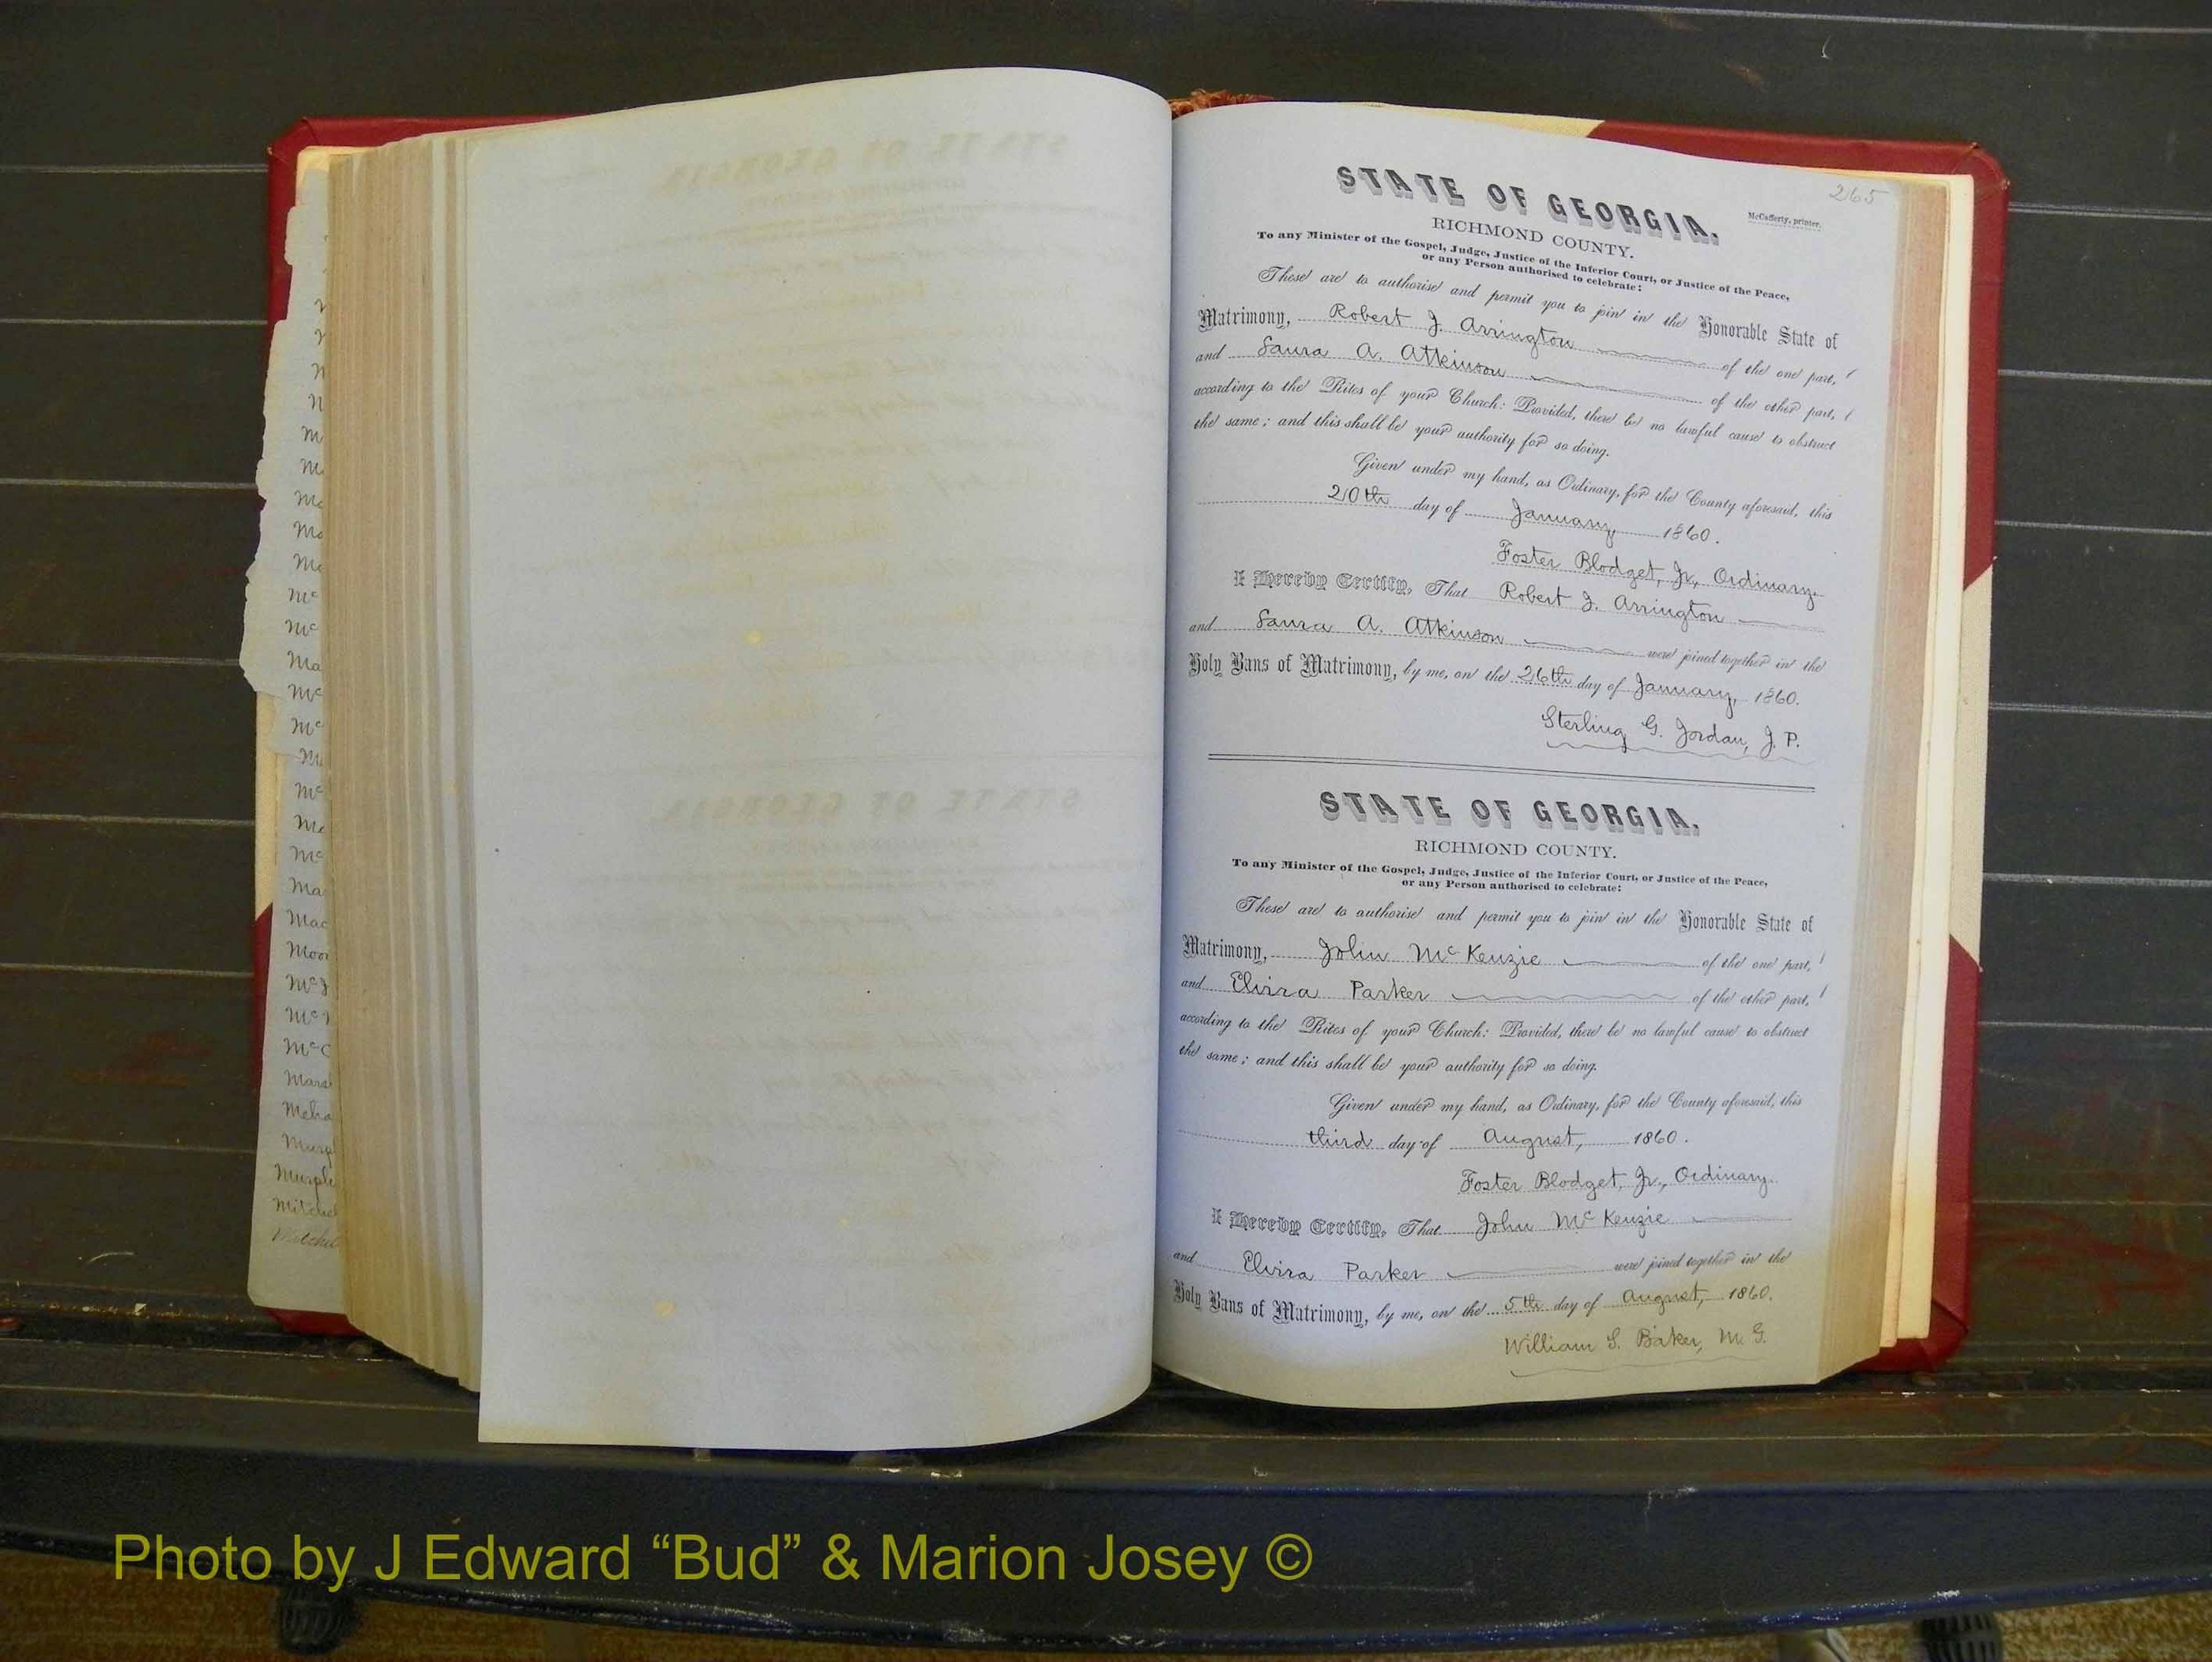 265
STATE OF GEORGIA.
McCafferty, printer.
RICHMOND COUNTY.
To any Minister of the Gospel, Judge, Justice of the Inferior Court, or Justice of the Peace,
or any Person authorised to celebrate:
These are to authorise and permit you to join in the Honorable State of
Matrimony, Robert J. Arrington of the one part,
and Laura A. Atkinson of the other part,
according to the Rites of your Church: Provided, there be no lawful cause to obstruct
the same; and this shall be your authority for so doing.
Given under my hand, as Ordinary, for the County aforesaid, this
20th day of January, 1860.
Foster Blodget, Jr., Ordinary.
I Hereby Certify, That Robert J. Arrington
and Laura A. Atkinson were joined together in the
Holy Bans of Matrimony, by me, on the 26th day of January, 1860.
Sterling G. Jordan, J. P.
STATE OF GEORGIA.
RICHMOND COUNTY.
To any Minister of the Gospel, Judge, Justice of the Inferior Court, or Justice of the Peace,
or any Person authorised to celebrate:
These are to authorise and permit you to join in the Honorable State of
Matrimony, John McKenzie of the one part,
and Elvira Parker of the other part,
according to the Rites of your Church: Provided, there be no lawful cause to obstruct
the same; and this shall be your authority for so doing.
Given under my hand, as Ordinary, for the County aforesaid, this
third day of August, 1860.
Foster Blodget, Jr., Ordinary.
I Hereby Certify, That John McKenzie
and Elvira Parker were joined together in the
Holy Bans of Matrimony, by me, on the 5th day of August, 1860.
William S. Baker, M. G.
Photo by J Edward “Bud” & Marion Josey ©